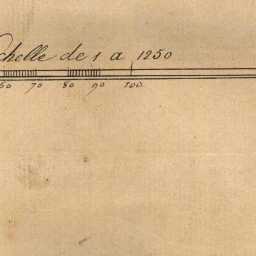 chelle de 1 a 1250
60 70 80 90 100